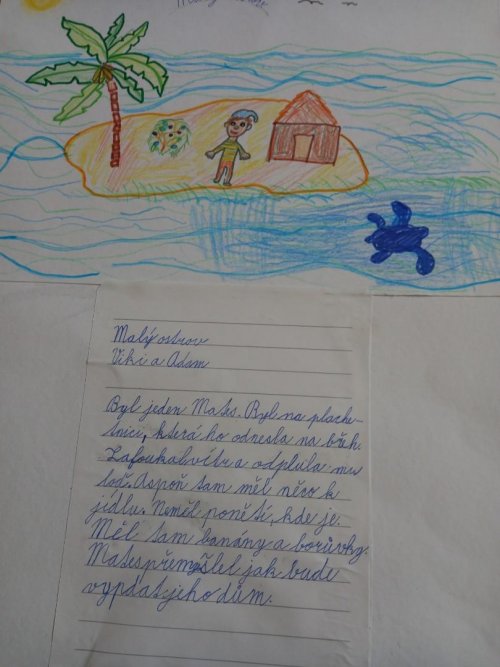 Malý ostrov
Viki a Adam
Byl jeden Mates. Byl na plache-
tnici, která ho odnesla na břeh.
Zafoukal vítr a odplula mu
loď. Aspoň tam měl něco k
jídlu. Neměl ponětí, kde je.
Měl tam banány a borůvky.
Mates přemyšlel jak bude
vypdat jeho dům.